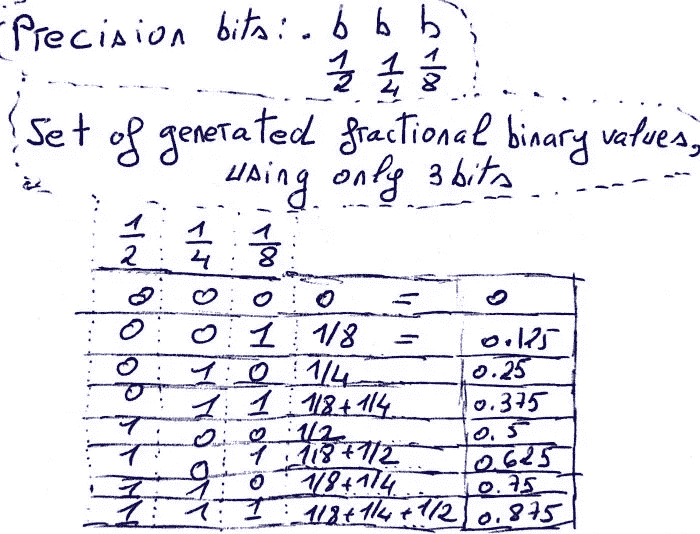 Precision bits: . b b b
1/2 1/4 1/8
Set of generated fractional binary values,
using only 3 bits
1/2 1/4 1/8
0 0 0 0 = 0
0 0 1 1/8 = 0.125
0 1 0 1/4 0.25
0 1 1 1/8+1/4 0.375
1 0 0 1/2 0.5
1 0 1 1/8+1/2 0.625
1 1 0 1/8+1/4 0.75
1 1 1 1/8+1/4+1/2 0.875